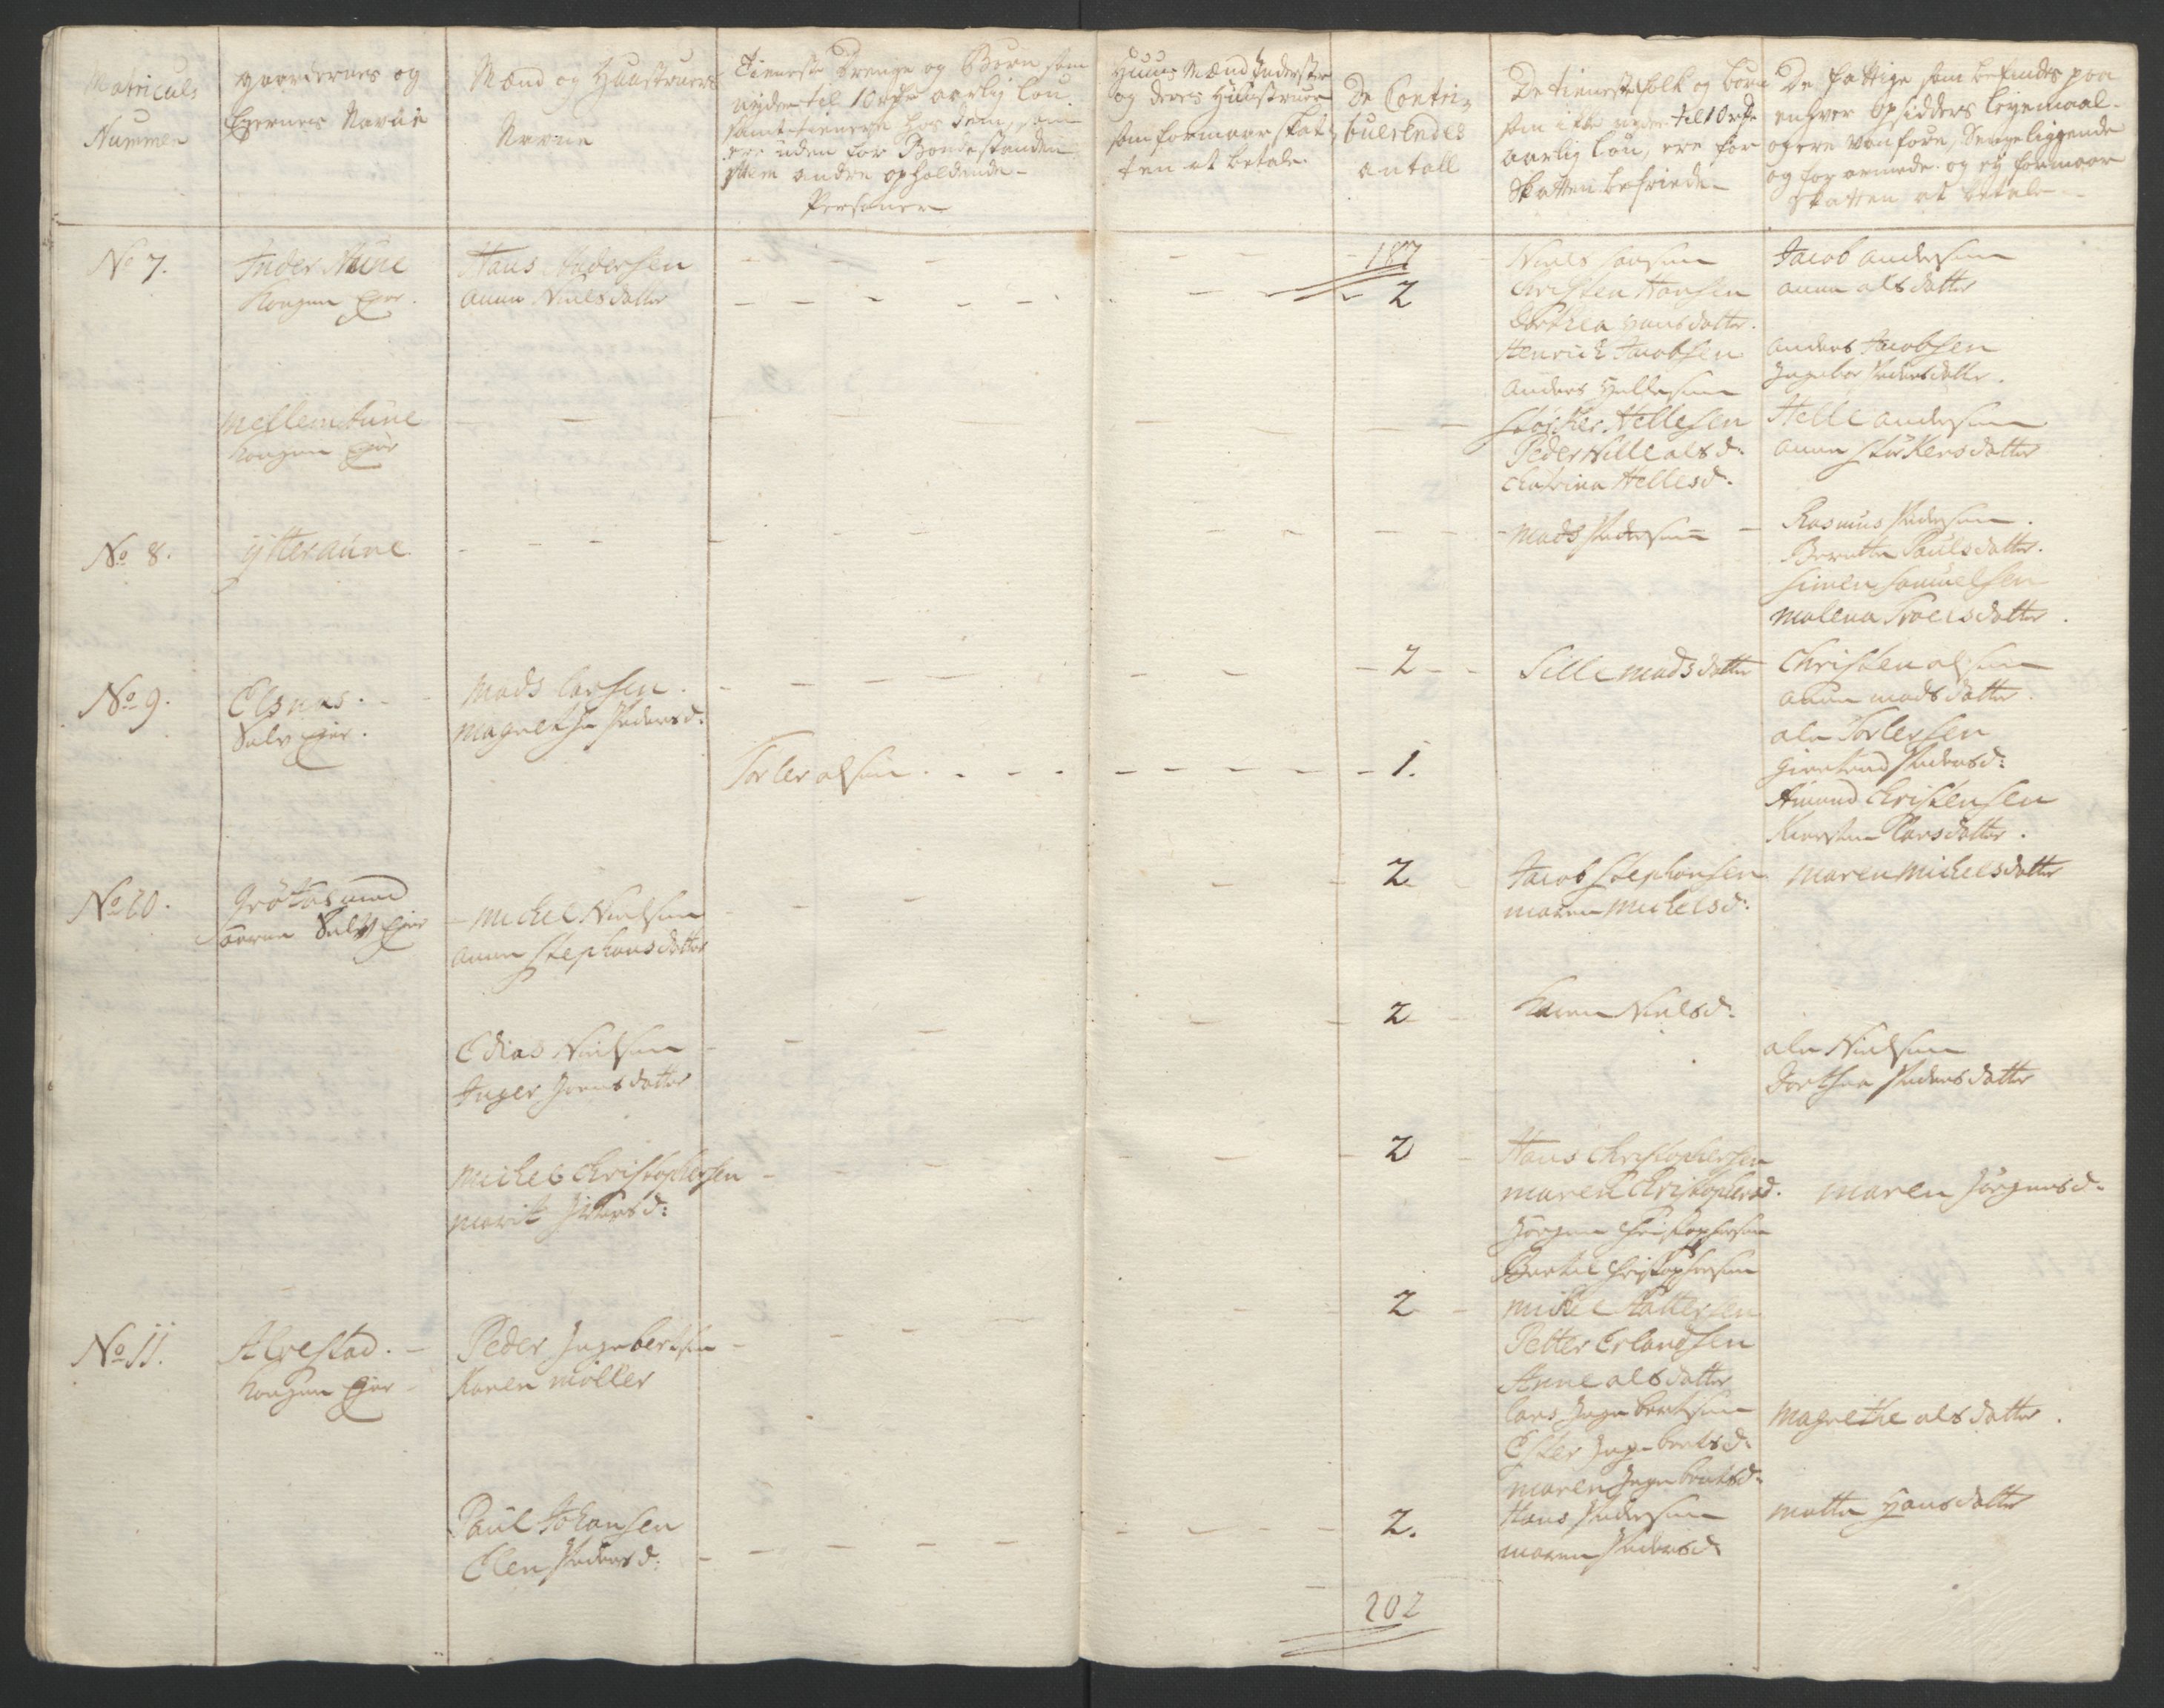 Matriculs
Nummer
gaardernes og
Eyernes Navne
Mænd og Hustruers
Navne
Tieneste Drenge og Børn som
nyder til 10 rdr aarlig løn
samt tienere hos dem, som
ere uden for Bondestanden
item andre opholdende
Personer
Huus Mænd Inderster
og deres Hustruer
som formaar skat-
ten at betale
De Contri-
buerendes
antall
De tieneste folk og børn
som icke nyder til 10 rdr
aarlig løn, ere for
Skatten befriede
De fattige som befindes paa
enhver Opsidders leyemaal
og ere vanføre, Sengeliggende
og forarmede og ey formaar
Skatten at betale
187
No 7. Inder Aune
Kongen Eyer.
Hans Andersen
Anne Nielsdatter
2
Niels Hansen
Christen Hansen
Dorthea Hansdatter.
Henrich Jacobsen
Jacob Andersen
Anne Olsdatter
Anders Jacobsen
Ingebor Pedersdatter.
Mellem Aune
Kongen Eyer
Anders Hellesen
Størker Hellesen
Peder Hille Olsd:
Chatrina Hellesd.
Helle Andersen
Anne Størkersdatter
No 8. Ytter Aune
Mads Pedersen
Rasmus Pedersen.
Berethe Paulsdatter.
Simen Samuelsen
Malena Troelsdatter.
No 9. Elsnes.
Selv Eyer.
Mads Larsen.
Magrethe Pedersd:
2
Sille Madsdatter
Christen Olsen
Anne Madsdatter.
Torler Olsen
1.
Ole Torlersen
Giertrud Pedersd:
Amund Christensen
Kiersten Larsdatter.
No 10. Grøtøs med
Selv Eyer
Michel Nielsen
Anne Stephansdatter
2
Jacob Stephansen
Maren Michelsd:
Maren Michelsdatter
Edias Nielsen
Inger Joensdatter
2
Karen Nielsd:
Ole Nielsen
Dorthea Pedersdatter
Michel Christophersen
Marit
2
Hans Christophersen
Maren Christophersd.
Jørgen Christophersen
Bertel Christophersen
Maren Jørgensd:
No 11. Alvestad.
Kongen Eyer
Peder Ingebertsen
Karen Møller
2
Michel Pettersen
Petter Erlandsen
Anne Olsdatter
Lars Ingebertsen
Ester Ingebertsd:
Maren Ingebertsd:
Magrethe Olsdatter.
Paul Johansen
Elen Pedersd:
2.
Hans Pedersen
Maren Pedersd
Mette Hansdatter
202